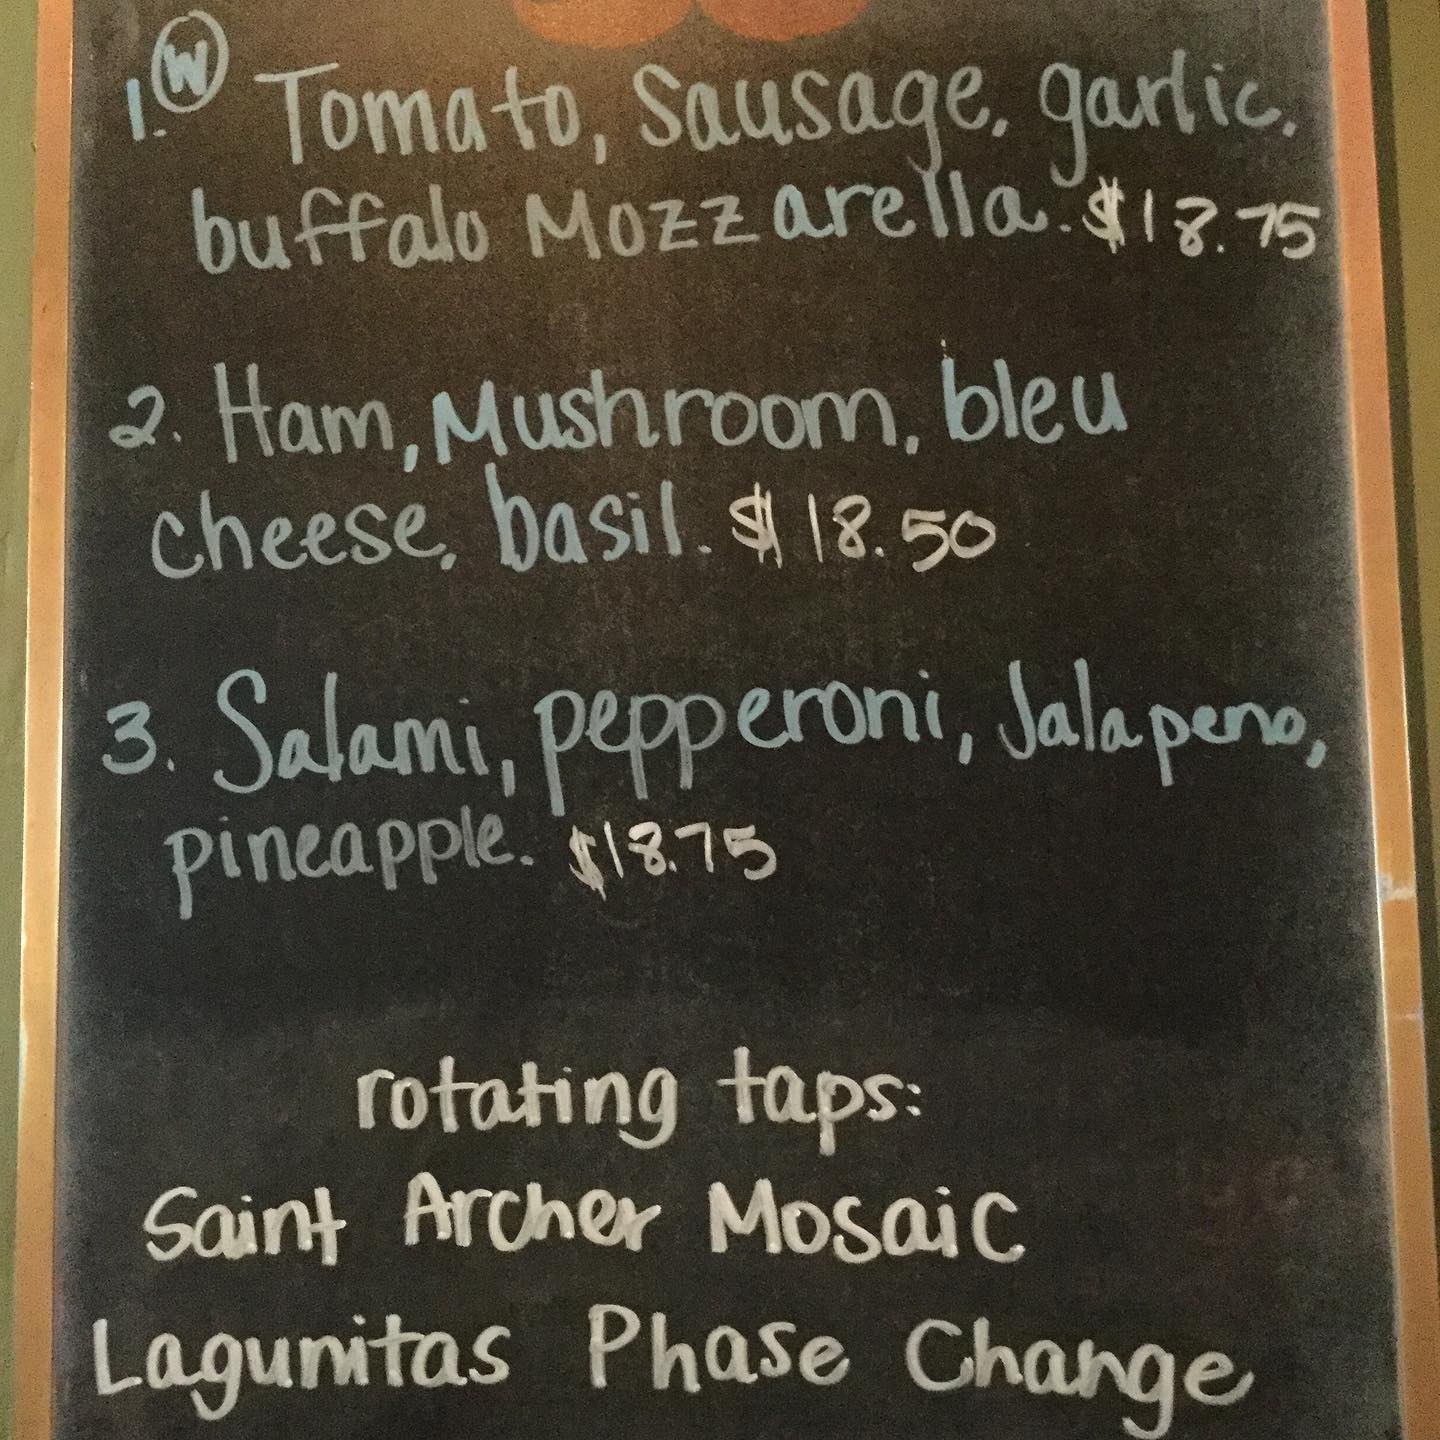 1. W Tomato, sausage, garlic,
buffalo Mozzarella. $18.75
2. Ham, Mushroom, bleu
cheese, basil. $18.50
3. Salami, pepperoni, Jalapeno,
pineapple. $18.75
rotating taps:
Saint Archer Mosaic
Lagunitas Phase Change